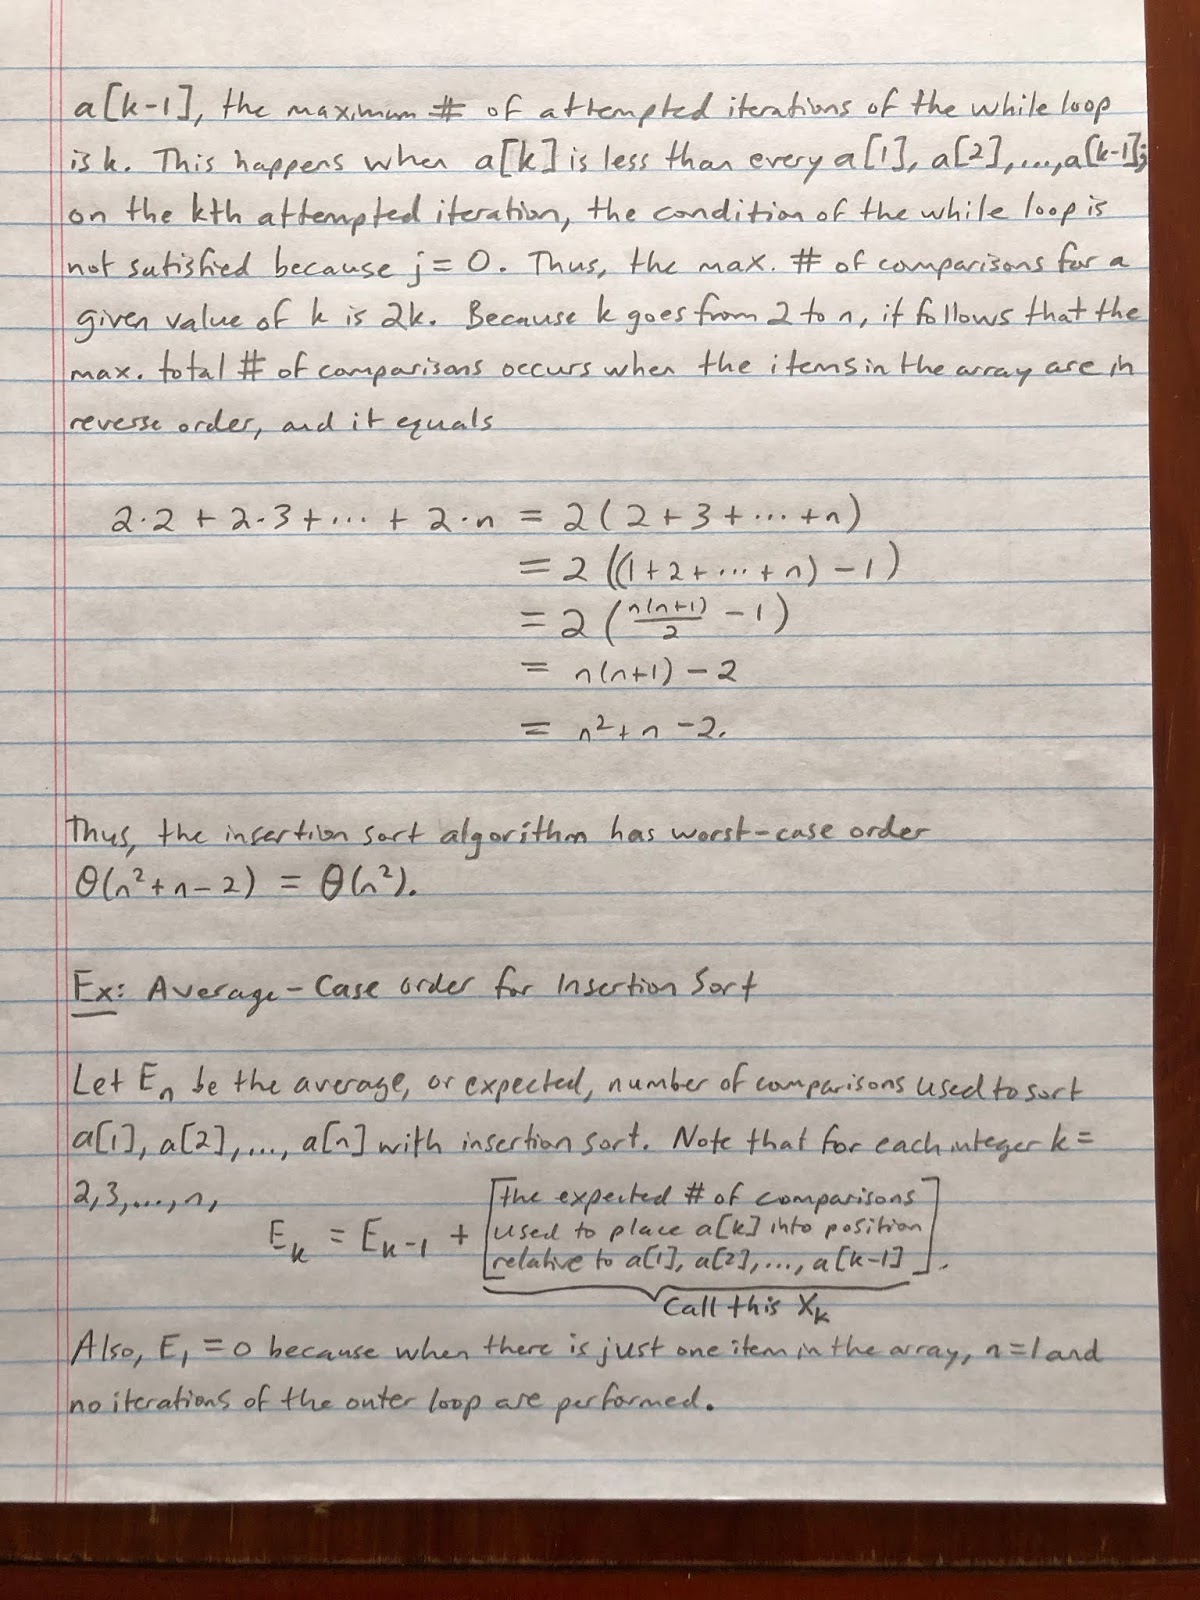 a[k-1], the maximum # of attempted iterations of the while loop
is k. This happens when a[k] is less than every a[1], a[2],...,a[k-1];
on the kth attempted iteration, the condition of the while loop is
not satisfied because j = 0. Thus, the max. # of comparisons for a
given value of k is 2k. Because k goes from 2 to n, it follows that the
max. total # of comparisons occurs when the items in the array are in
reverse order, and it equals
2·2 + 2·3 + ··· + 2·n = 2(2+3+···+n)
= 2((1+2+···+n) - 1)
= 2(n(n+1)/2 - 1)
= n(n+1) - 2
= n²+n-2.
Thus, the insertion sort algorithm has worst-case order
Θ(n²+n-2) = Θ(n²).
Ex: Average-Case order for Insertion Sort
Let Eₙ be the average, or expected, number of comparisons used to sort
a[1], a[2],..., a[n] with insertion sort. Note that for each integer k =
2,3,...,n,
Eₖ = Eₖ₋₁ + [the expected # of comparisons
used to place a[k] into position
relative to a[1], a[2],..., a[k-1]].
Call this Xₖ
Also, E₁ = 0 because when there is just one item in the array, n=1 and
no iterations of the outer loop are performed.